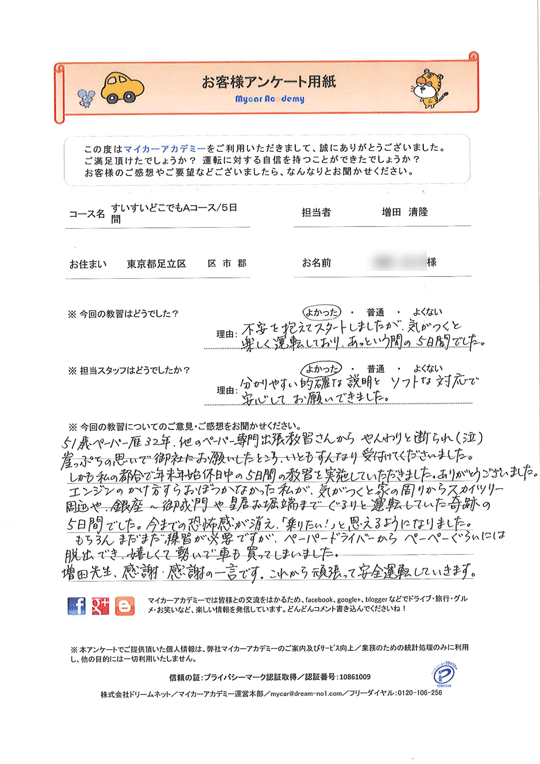 お客様アンケート用紙
Mycar Academy
この度はマイカーアカデミーをご利用いただきまして、誠にありがとうございました。
ご満足頂けたでしょうか？ 運転に対する自信を持つことができたでしょうか？
お客様のご感想やご要望などございましたら、なんなりとお聞かせください。
コース名 すいすいどこでもAコース/5日間 担当者 増田 清隆
お住まい 東京都足立区 区 市 郡 お名前 様
※ 今回の教習はどうでした？ よかった ・ 普通 ・ よくない
理由: 不安を抱えてスタートしましたが、気がつくと
楽しく運転しており、あっという間の5日間でした。
※ 担当スタッフはどうでしたか？ よかった ・ 普通 ・ よくない
理由: 分かりやすい的確な説明と ソフトな対応で
安心して お願いできました。
※ 今回の教習についてのご意見・ご感想をお聞かせください。
51歳ペーパー歴32年、他のペーパー専門出張教習さんから やんわりと断られ(泣)
崖っぷちの思いで御社にお願いしたところ、いともすんなり受付けてくださいました。
しかも私の都合で年末年始休日中の5日間の教習を実施していただきました。ありがとうございました。
エンジンのかけ方すらおぼつかなかった私が、気がつくと家の周りからスカイツリー
周辺や、銀座～御成門や皇居お堀端まで ぐるりと運転していた奇跡の
5日間でした。今までの恐怖感が消え、「乗りたい!」と思えるようになりました。
もちろん まだまだ練習が必要ですが、ペーパードライバーから ペーペーぐらいには
脱出でき、嬉しくて 勢いで車も買ってしまいました。
増田先生、感謝・感謝の一言です。これから頑張って安全運転していきます。
マイカーアカデミーでは皆様との交流をはかるため、facebook、google+、bloggerなどでドライブ・旅行・グル
メ・お笑いなど、楽しい情報を発信しています。どんどんコメント書き込んでくださいね！
※ 本アンケートでご提供頂いた個人情報は、弊社マイカーアカデミーのご案内及びサービス向上／業務のための統計処理のみに利用
し、他の目的には一切利用いたしません。
信頼の証：プライバシーマーク認証取得／認証番号：10861009
株式会社ドリームネット／マイカーアカデミー運営本部／mycar@dream-no1.com／フリーダイヤル：0120-106-256